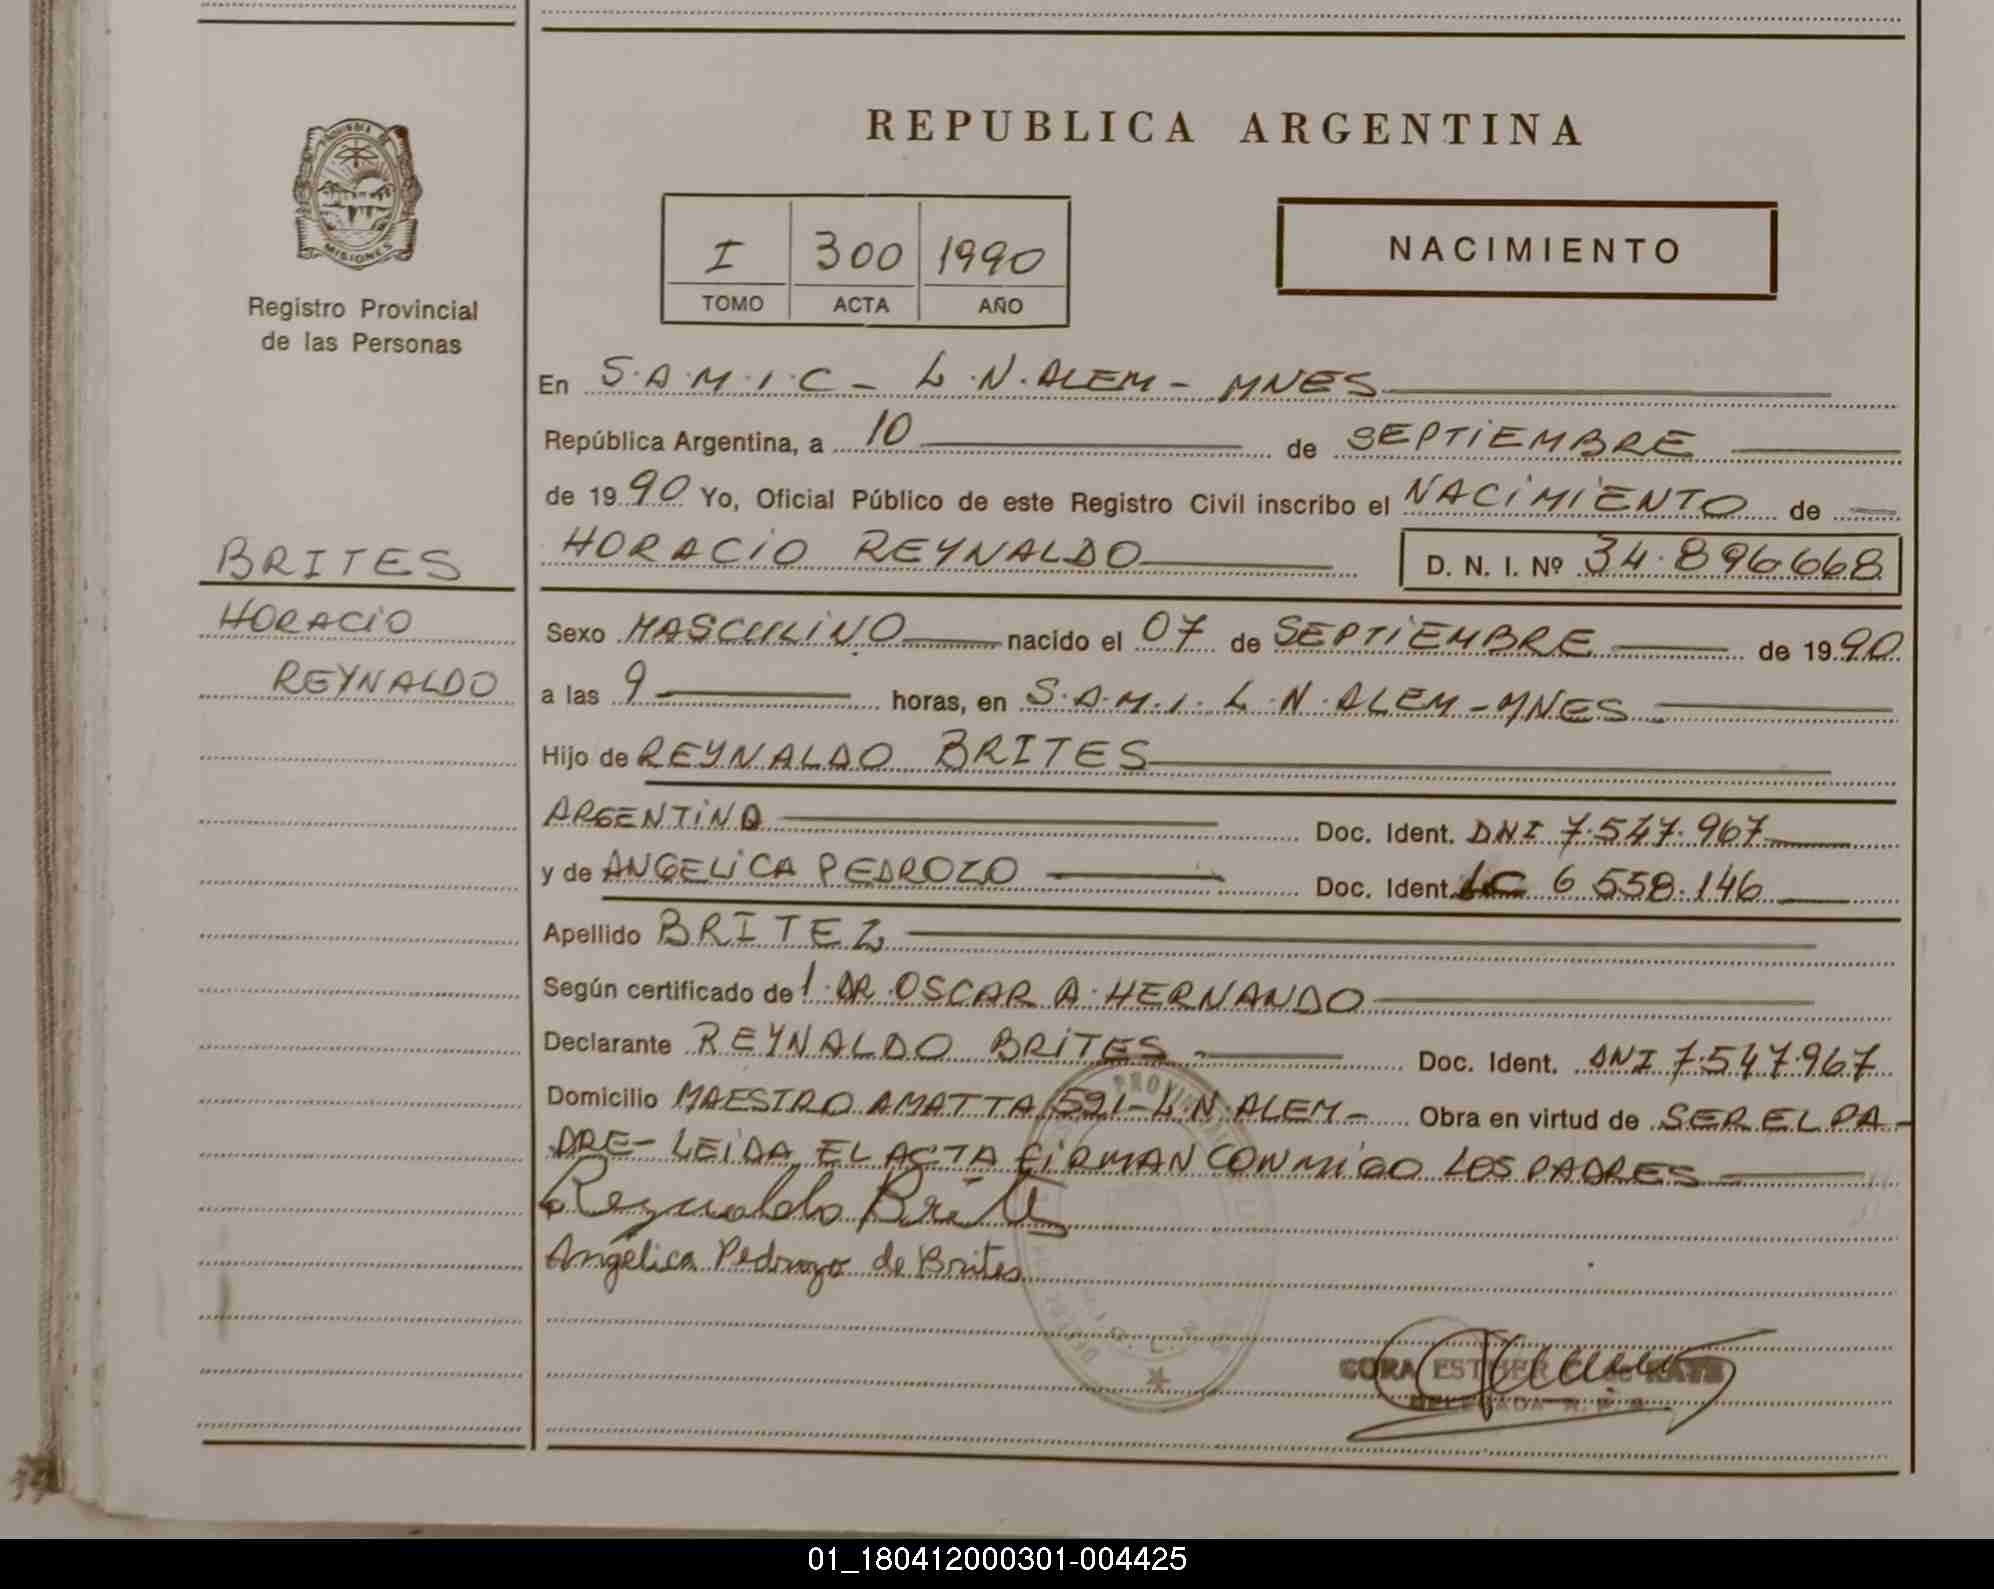 REPUBLICA ARGENTINA
MISIONES
Registro Provincial
de las Personas
I 300 1990
TOMO ACTA AÑO
NACIMIENTO
En S.A.M.I.C - L.N. ALEM - MNES
República Argentina, a 10 de SEPTIEMBRE
de 1990 Yo, Oficial Público de este Registro Civil inscribo el NACIMIENTO de
HORACIO REYNALDO D. N. I. Nº 34.896668
BRITES
HORACIO
REYNALDO
Sexo MASCULINO nacido el 07 de SEPTIEMBRE de 1990
a las 9 horas, en S.A.M.I. L.N. ALEM - MNES
Hijo de REYNALDO BRITES
ARGENTINO Doc. Ident. DNI 7.547.967
y de ANGELICA PEDROZO Doc. Ident. LC 6 558.146
Apellido BRITEZ
Según certificado de 1. DR. OSCAR A. HERNANDO
Declarante REYNALDO BRITES Doc. Ident. DNI 7.547.967
Domicilio MAESTRO AMATTA 591 - L.N. ALEM - Obra en virtud de SER EL PA-
DRE - LEIDA EL ACTA FIRMAN CONMIGO LOS PADRES
Reynaldo Brites
Angélica Pedrozo de Brites
CORA ESTHER
DELEGADA R. P. P.
01_180412000301-004425